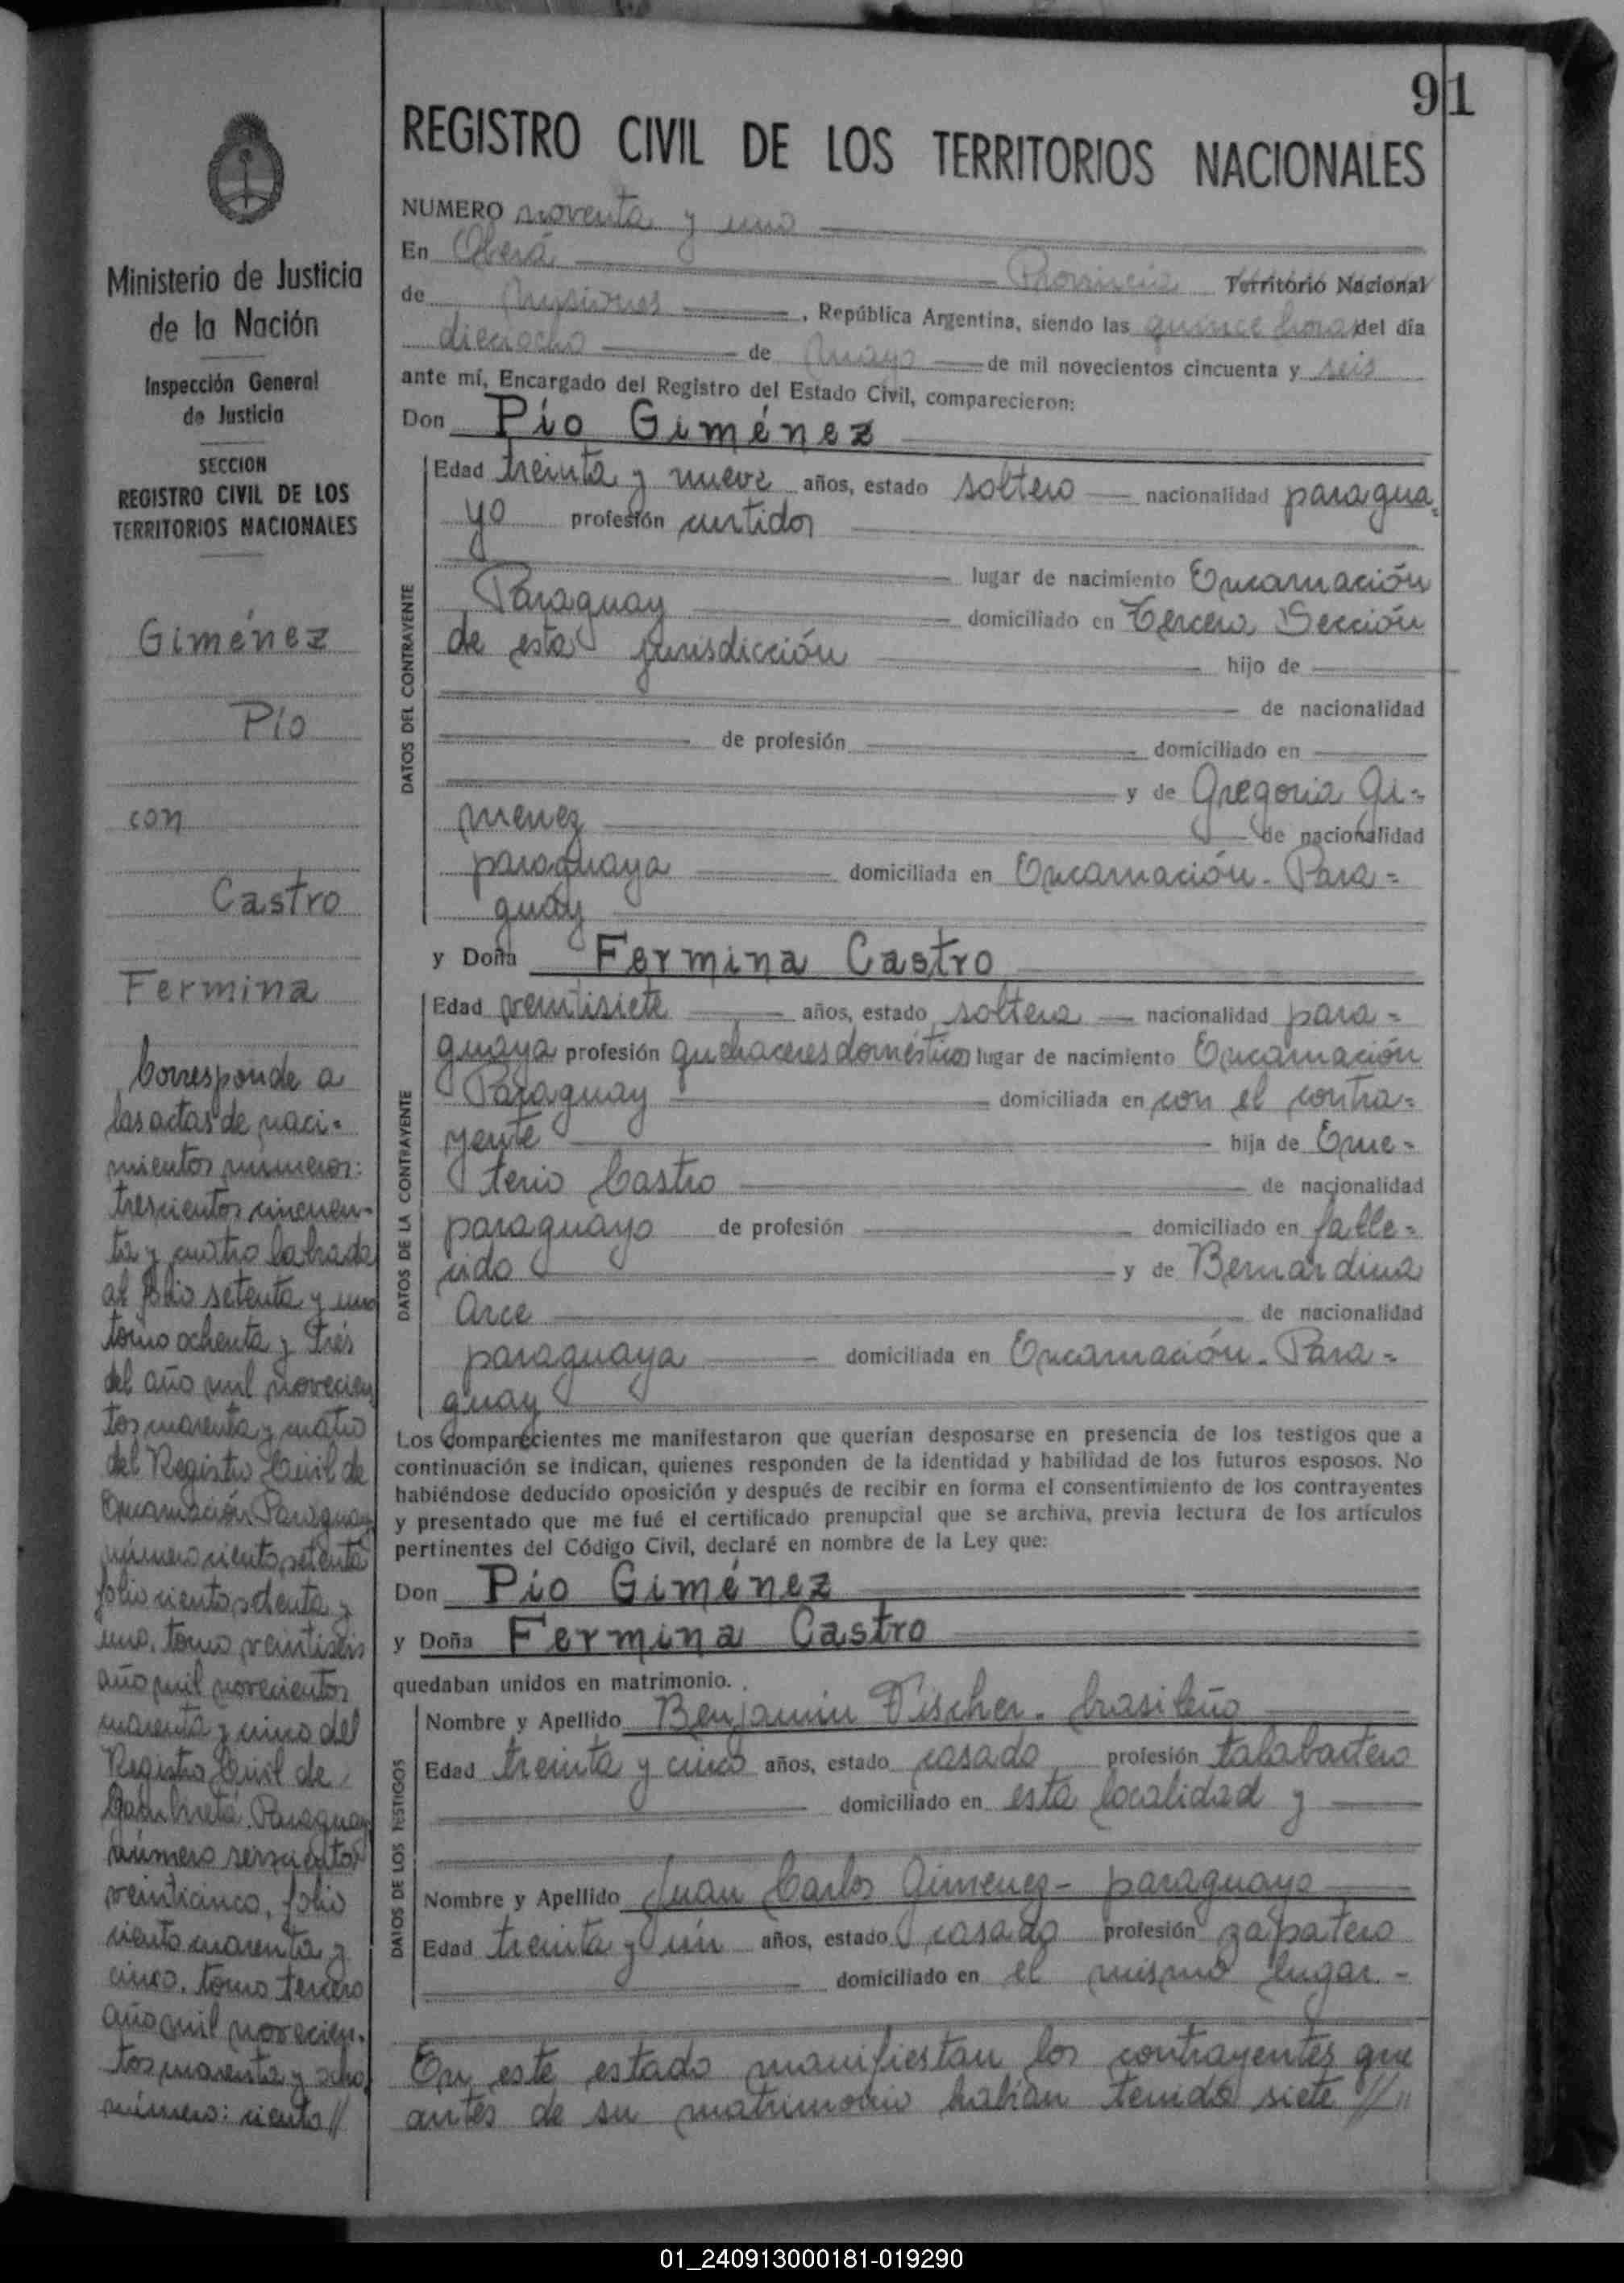 91
Ministerio de Justicia
de la Nación
Inspección General
de Justicia
SECCION
REGISTRO CIVIL DE LOS
TERRITORIOS NACIONALES
Giménez
Pío
con
Castro
Fermina
Corresponde a
las actas de naci-
mientos números:
trescientos cincuen-
ta y cuatro labrada
al folio setenta y uno
tomo ochenta y tres
del año mil novecien
tos cuarenta y cuatro
del Registro Civil de
Encarnación Paraguay
número ciento setenta
folio ciento y
uno, tomo veintiseis
año mil novecientos
cuarenta y cinco del
Registro Civil de
Paraguay
número
veinticinco, folio
ciento cuarenta y
cinco, tomo tercero
año mil novecien-
tos cuarenta y ocho,
número: ciento //
REGISTRO CIVIL DE LOS TERRITORIOS NACIONALES
NUMERO noventa y uno
En Oberá Provincia Territorio Nacional
de Misiones, República Argentina, siendo las quince horas del día
dieciocho de mayo de mil novecientos cincuenta y seis
ante mí, Encargado del Registro del Estado Civil, comparecieron:
Don Pío Giménez
DATOS DEL CONTRAYENTE
Edad treinta y nueve años, estado soltero nacionalidad paragua-
yo profesión curtidor
lugar de nacimiento Encarnación
Paraguay domiciliado en Tercera Sección
de esta jurisdicción hijo de
de nacionalidad
de profesión domiciliado en
y de Gregoria Gi-
menez de nacionalidad
paraguaya domiciliada en Encarnación - Para=
guay
y Doña Fermina Castro
DATOS DE LA CONTRAYENTE
Edad veintisiete años, estado soltera nacionalidad para=
guaya profesión quehaceres domésticos lugar de nacimiento Encarnación
Paraguay domiciliada en con el contra=
yente hija de Eme=
terio Castro de nacionalidad
paraguayo de profesión domiciliado en falle=
cido y de Bernardina
Arce de nacionalidad
paraguaya domiciliada en Encarnación - Para=
guay
Los comparecientes me manifestaron que querían desposarse en presencia de los testigos que a
continuación se indican, quienes responden de la identidad y habilidad de los futuros esposos. No
habiéndose deducido oposición y después de recibir en forma el consentimiento de los contrayentes
y presentado que me fué el certificado prenupcial que se archiva, previa lectura de los artículos
pertinentes del Código Civil, declaré en nombre de la Ley que:
Don Pío Giménez
y Doña Fermina Castro
quedaban unidos en matrimonio.
DATOS DE LOS TESTIGOS
Nombre y Apellido Benjamin Fischer - brasileño
Edad treinta y cinco años, estado casado profesión talabartero
domiciliado en esta localidad y
Nombre y Apellido Juan Carlos Gimenez - paraguayo
Edad treinta y un años, estado casado profesión zapatero
domiciliado en el mismo lugar -
En este estado manifiestan los contrayentes que
antes de su matrimonio habían tenido siete //"
01_240913000181-019290